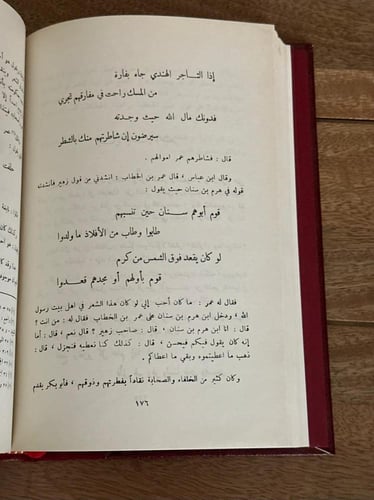 إذا التاجر الهندي جاء بفارة
من المسك راحت في مفارقهم تجري
فدونك مال الله حيث وجدته
سيرضون إن شاطرتهم منك بالشطر
قال : فشاطرهم عمر اموالهم .
وقال ابن عباس ، قال عمر بن الخطاب : انشدني من قول زهير فأنشدت
قوله في هرم بن سنان حيث يقول :
قوم أبوهم سنان حين تنسبهم
طابوا وطاب من الأفلاذ ما ولدوا
لو كان يقعد فوق الشمس من كرم
قوم بأولهم أو مجدهم قعدوا
فقال له عمر : ما كان أحب إلي لو كان هذا الشعر في اهل بيت رسول
الله ، ودخل ابن هرم بن سنان على عمر بن الخطاب فقال له : من انت ؟
قال : انا ابن هرم بن سنان ، قال : صاحب زهير ؟ قال نعم ، قال : أما
إنه كان يقول فيكم فيحسن ، قال : كذلك كنا نعطيه فنجزل ، قال :
ذهب ما اعطيتموه وبقي ما اعطاكم .
وكان كثير من الخلفاء والصحابة نقاداً بفطرتهم وذوقهم ، فأبو بكر يقدم
١٧٦